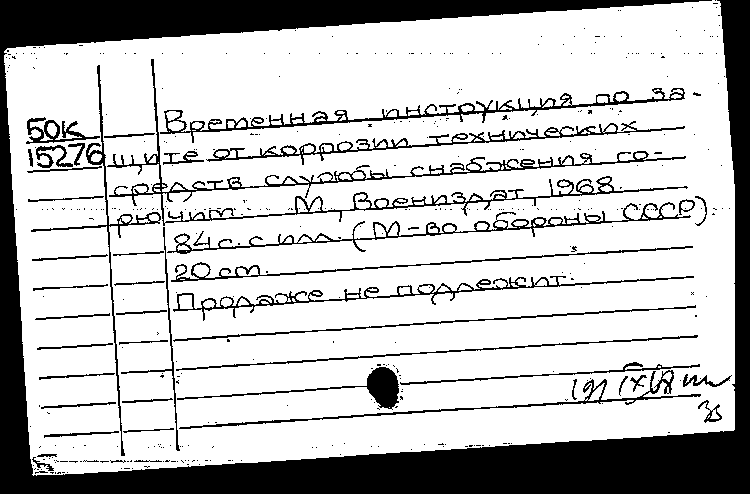 50К Временная инструкция по за-
15276 щите от коррозии технических
средств службы снабжения го-
рючим. М., Воениздат, 1968.
84 с. с илл. (М-во обороны СССР).
20 см.
Продаже не подлежит.